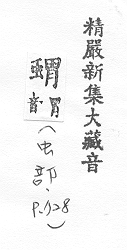 精嚴新集大藏音
蝟
音胃
(虫部, P.128)